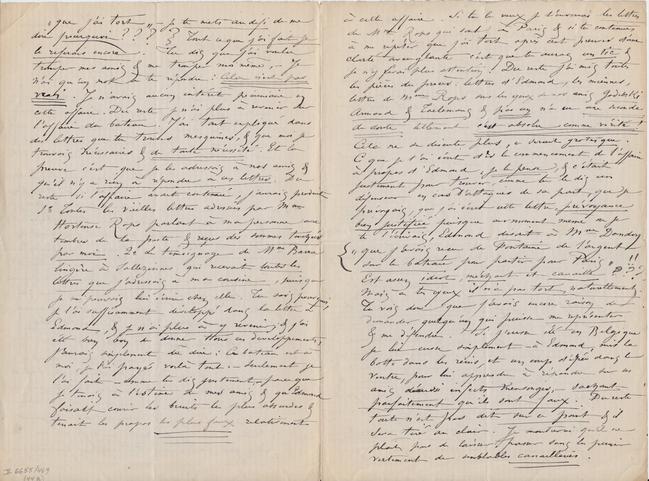 "que j'ai tort" – je te mets au défi de me
dire pourquoi ? ? ? ? Tout ce que j'ai fait je
le referais encore. Tu dis que j'ai voulu
tromper mes amis & me tromper moi même. Je
n'ai qu'un mot à te répondre : Cela n'est pas
vrai ! Je n'avais aucun intérêt pécuniaire en
cette affaire. Du reste je n'ai plus à revenir sur
l'affaire du bateau. J'ai tout expliqué dans
des lettres que tu trouves mesquines, & que moi je
trouvais nécessaires & de toute nécessité. Et la
preuve c'est que je les adressais à nos amis &
qu'il n'y a rien à répondre à ces lettres. Du
reste si l'affaire avait continué j'aurais produit
1° Toutes les vieilles lettres adressées par Mme
Hortense Rops parlant à ma personne avec
timbres de la poste & reçus des sommes
par moi. 2° Le témoignage de Mme
lingère à qui recevait toutes les
lettres que j'adressais à ma cousine, puisque
je ne pouvais lui écrire chez elle. Tu sais pourquoi,
je l'ai suffisamment développé dans la lettre à
Edmond, & je n'ai plus à y revenir, & j'ai
été bien bon de donner tous ces développements,
j'aurais simplement dû dire : Ce bateau est à
moi, je l'ai payé, voilà tout. – Seulement je
l'ai fait – comme tu dis justement, parce que
je tenais à l'estime de mes amis & qu'Edmond
faisait courir les bruits les plus absurdes &
tenait les propos les plus faux relativement
à cette affaire. Si tu le veux je t'enverrai les lettres
de Mme Rops qui sont à Paris & si tu continues
à me répéter que j'ai tort après cette preuve d'une
clarté aveuglante c'est que tu auras un tic &
je n'y ferai plus attention ! Du reste j'ai mis toutes
les pièces du procès : lettres d'Edmond, les miennes,
lettres de Mme Rops sous les yeux de nos amis
Armand & & pas un n'a eu une seconde
de doute tellement c'est absolu comme vérité !
Cela ne se discute plus, ce serait grotesque.
Ce que je t'ai écrit dès le commencement de l'affaire
à propos d'Edmond, je le pense, & c'était
justement pour trouver comme tu le dis un
défenseur en cas d'attaques de sa part, que je
prévoyais, que j'ai écrit cette lettre, prévoyance
bien justifiée puisque au moment même où je
te l'écrivais, Edmond disait à Mme Dandoy
"que j'avais reçu de Fontaine de l'argent
sur le bateau pour partir pour Paris" !!
Est assez idiot, méchant et canaille ? ? ?
Mais à tes yeux il n'a pas tort, naturellement.
Tu vois donc que j'avais encore raison de
demander quelqu'un qui puisse me représenter
& me défendre. Si j'eusse été en Belgique
je lui eusse simplement – à Edmond, mis la
botte dans les reins et un coup d'épée dans le
ventre, pour lui apprendre à répandre sur ses
amis d'infects mensonges, sachant
parfaitement qu'ils sont faux. Du reste
tout n'est pas dit sur ce point & il
sera tiré au clair. Je montrerai qu'il ne me
plait pas de laisser passer sans le punir
vertement de semblables canailleries.
II 6655/469